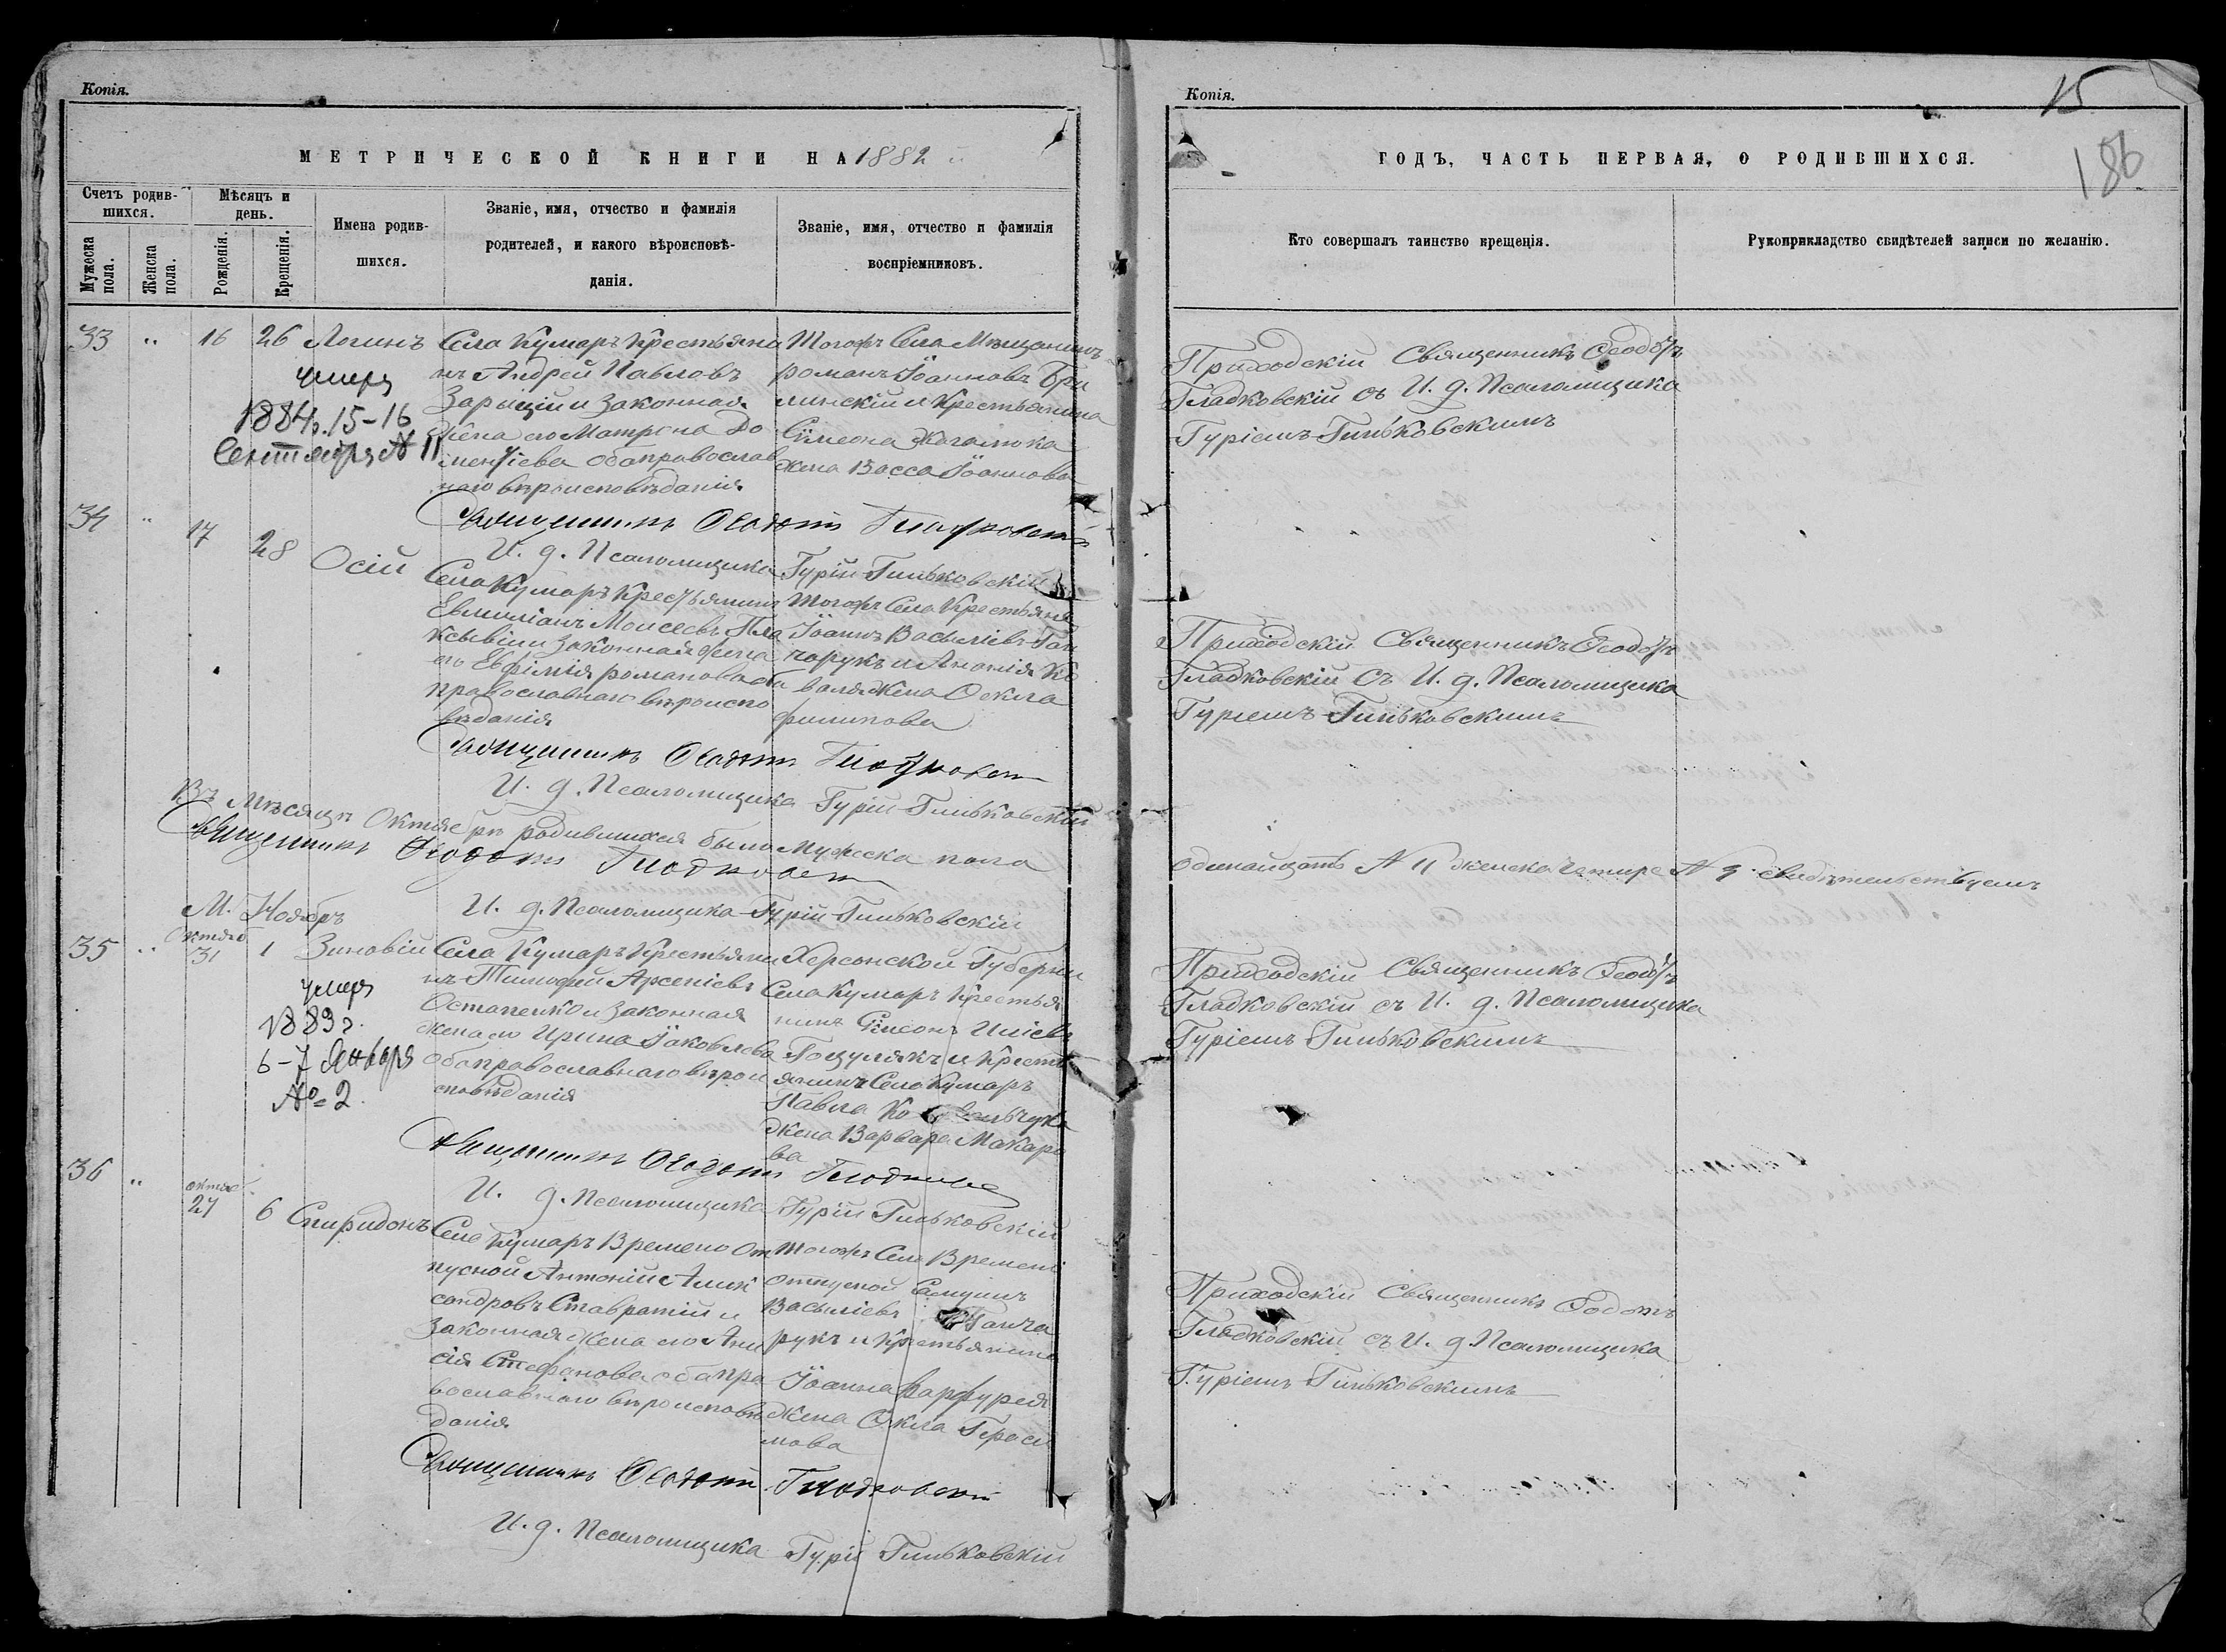 Копія.
МЕТРИЧЕСКОЙ КНИГИ НА 1882
Счетъ родив-
шихся.
Мѣсяцъ и
день.
Мужеска
пола.
Женска
пола.
Рожденія.
Крещенія.
Имена родив-
шихся.
Званіе, имя, отчество и фамилія
родителей, и какого вѣроисповѣ-
данія.
Званіе, имя, отчество и фамилія
воспріемниковъ.
33 " 16 26 Логинъ
умеръ
1884г. 15-16
Сентября № 11
Села Кумаръ Крестьяни
нъ Андрей Павловъ
Зарыцій и законная
жена его Матрона До
ментіева оба православ
наго вѣроисповѣданія
Тогожъ Села Мѣщанинъ
романъ Іоанновъ Бри
линскій и Крестьянина
Сімеона
жена Васса Іоаннова
Священникъ Ѳеодотъ Гладковскій
И. д. Псаломщика Гурій Гиньковскій
34 " 17 28 Осій
Села Кумаръ Крестьянинъ
Евмиліанъ Моисеевъ Пла
ксывій и законная жена
его Евфимія романова оба
православнаго вѣроиспо
вѣданія
Тогожъ Села Крестьяне
Іоаннъ Василіевъ Ган
чарукъ и Ананія Ко
валя жена Ѳекла
филипова
Священникъ Ѳеодотъ Гладковскій
И. д. Псаломщика Гурій Гиньковскій
Въ Мѣсяцѣ Октябрѣ родившихся было Мужеска пола
Священникъ Ѳеодотъ Гладковскій
И. д. Псаломщика Гурій Гиньковскій
М. Ноябръ
35 " Октяб. 31 1 Зиновій
умеръ
1883 г.
6-7 Января
№ 2.
Села Кумаръ Крестьяни
нъ Тимофей Арсеніевъ
Остапенко и законная
жена его Ирина Іаковлева
оба православнаго вѣрои
сповѣданія
Херсонской Губерніи
Села Кумаръ Крестья
нинъ Сімеонъ Иліевъ
Гоцулякъ и Кресть
янинъ Села Кумаръ
Павла
жена Варвара Макаро
ва
Священникъ Ѳеодотъ Гладковскій
И. д. Псаломщика Гурій Гиньковскій
36 " октяб. 27 6 Спиридонъ
Села Кумаръ Времено От
пусной Антоній Алик
сандровъ Ставратій и
законная жена его Ани
сія Стефанова оба пра
вославнаго вѣроисповѣ
данія
Тогожъ Села Времені
отпусной Самуилъ
Василіевъ Ганча
рукъ и Крестьянина
Іоанна
жена Ѳекла Гераси
мова
Священникъ Ѳеодотъ Гладковскій
И. д. Псаломщика Гурій Гиньковскій
Копія.
15
186
ГОДЪ, ЧАСТЬ ПЕРВАЯ, О РОДИВШИХСЯ.
Кто совершалъ таинство крещенія.
Рукоприкладство свидѣтелей записи по желанію.
Приходскій Священникъ Ѳеодотъ
Гладковскій съ И. д. Псаломщика
Гуріемъ Гиньковскимъ
Приходскій Священникъ Ѳеодотъ
Гладковскій съ И. д. Псаломщика
Гуріемъ Гиньковскимъ
одинайцать № 11 женска четире № 4 свидѣтельствуемъ
Приходскій Священникъ Ѳеодотъ
Гладковскій съ И. д. Псаломщика
Гуріемъ Гиньковскимъ
Приходскій Священникъ Ѳодотъ
Гладковскій съ И. д Псаломщика
Гуріемъ Гиньковскимъ